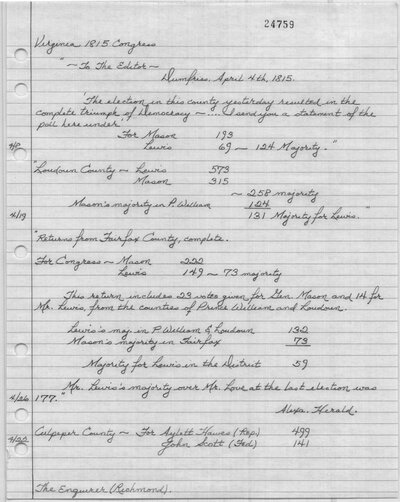 24759
Virginia 1815 Congress
"~ To The Editor ~
Dumfries, April 4th, 1815.
"The election in this county yesterday resulted in the
complete triumph of Democracy ~ .... I send you a statement of the
poll here under
For Mason 193
4/8 Lewis 69 ~ 124 Majority."
"Loudoun County ~ Lewis 573
Mason 315
~ 258 majority
Mason's majority in P. William 124
4/19 131 Majority for Lewis."
"Returns from Fairfax County, complete.
For Congress ~ Mason 222
Lewis 149 ~ 73 majority
This return includes 23 votes given for Gen. Mason and 14 for
Mr. Lewis, from the counties of Prince William and Loudoun.
Lewis's maj. in P. William & Loudoun 132
Mason's majority in Fairfax 73
Majority for Lewis in the District 59
Mr. Lewis's majority over Mr. Love at the last election was
4/26 177."
Alexa. Herald.
4/22 Culpeper County ~ For Aylett Hawes (Rep.) 499
John Scott (Fed) 141
The Enquirer (Richmond).